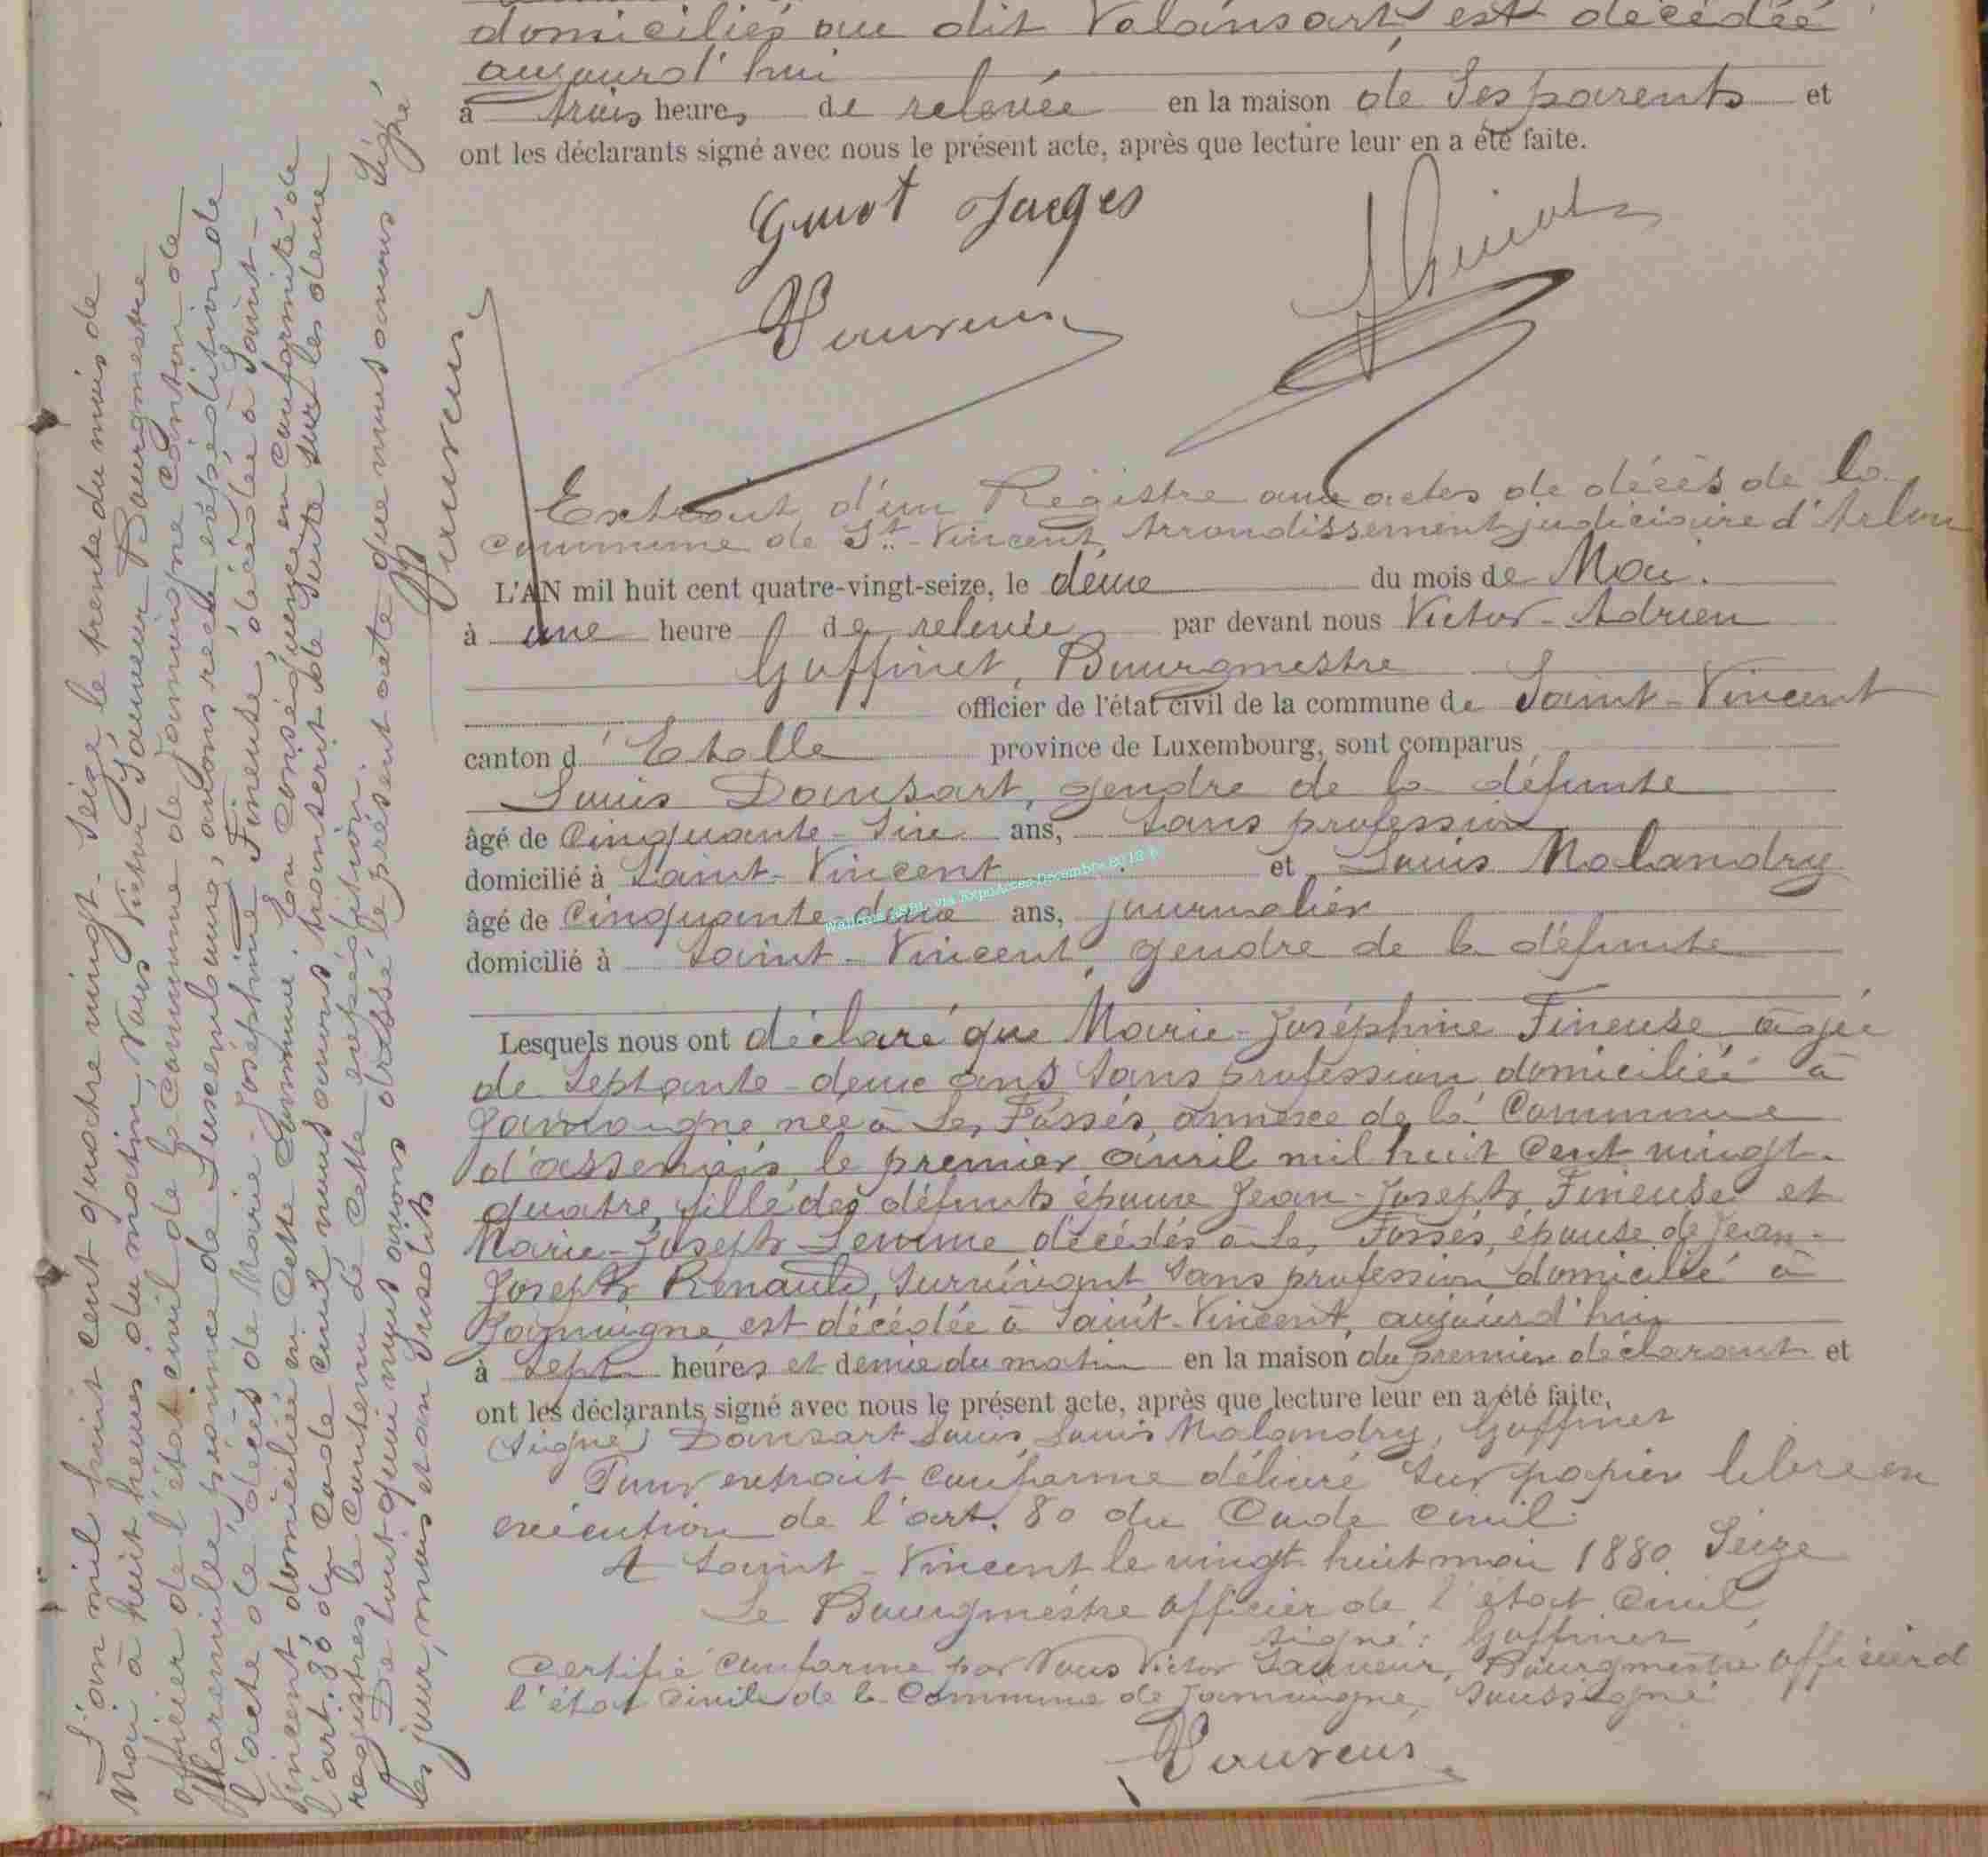 domiciliés au dit Valansart, est décédée
aujourd'hui
à trois heures de relevée en la maison de Ses parents et
ont les déclarants signé avec nous le présent acte, après que lecture leur en a été faite.
Guiot Jacges
Extrait d'un Registre aux actes de décès de la
Commune de St. Vincent, Arrondissement judiciaire d'Arlon
L'AN mil huit cent quatre-vingt-seize, le deux du mois de Mai.
à une heure de relevée par devant nous Victor-Adrien
Goffinet, Bourgmestre
officier de l'état civil de la commune de Saint-Vincent
canton d'Etalle province de Luxembourg, sont comparus
Louis Dansart, gendre de la défunte
âgé de Cinquante-Six ans, Sans profession
domicilié à Saint-Vincent et Louis Malandry
âgé de Cinquante-deux ans, journalier
domicilié à Saint-Vincent, gendre de la défunte
Lesquels nous ont déclaré que Marie-Joséphine Fineuse, âgée
de Septante-deux ans Sans profession domiciliée à
Jamoigne née à Les Fossés, annexe de la Commune
d'assenois, le premier avril mil huit Cent vingt-
quatre, fille des défunts époux Jean-Joseph Fineuse et
Marie-Joseph décédés à Les Fossés, épouse de Jean-
Joseph Renauld, Survivant, Sans profession domicilié à
Jamoigne est décédée à Saint-Vincent, aujourd'hui
à Sept heures et demie du matin en la maison du premier déclarant et
ont les déclarants signé avec nous le présent acte, après que lecture leur en a été faite,
(Signé) Dansart Louis, Louis Malandry, Goffinet
Pour extrait conforme délivré Sur papier libre en
exécution de l'art. 80 du Code Civil.
A Saint-Vincent le vingt huit mai 1880 Seize
Le Bourgmestre officier de l'état Civil
Signé: Goffinet
Certifié Conforme par Nous Victor Bourgmestre officier d
l'état Civil de la Commune de Jamoigne, Soussigné
L'an mil huit cent quatre vingt-Seize le trente du mois de
Mai à huit heures du matin, Nous Victor Bourgmestre
officier de l'état civil de la Commune de Jamoigne Canton de
province de Luxembourg, avons reçu expédition de
l'acte de décès de Marie-Joséphine Fineuse, décédée à Saint-
Vincent, domiciliée en Cette Commune. En Conséquence, en Conformité de
l'art. 80 du Code Civil nous avons transcrit de Suite Sur les deux
registres, le Contenu de Cette expédition.
De tout quoi nous avons dressé le présent acte que nous avons Signé
les jour, mois et an Susdits